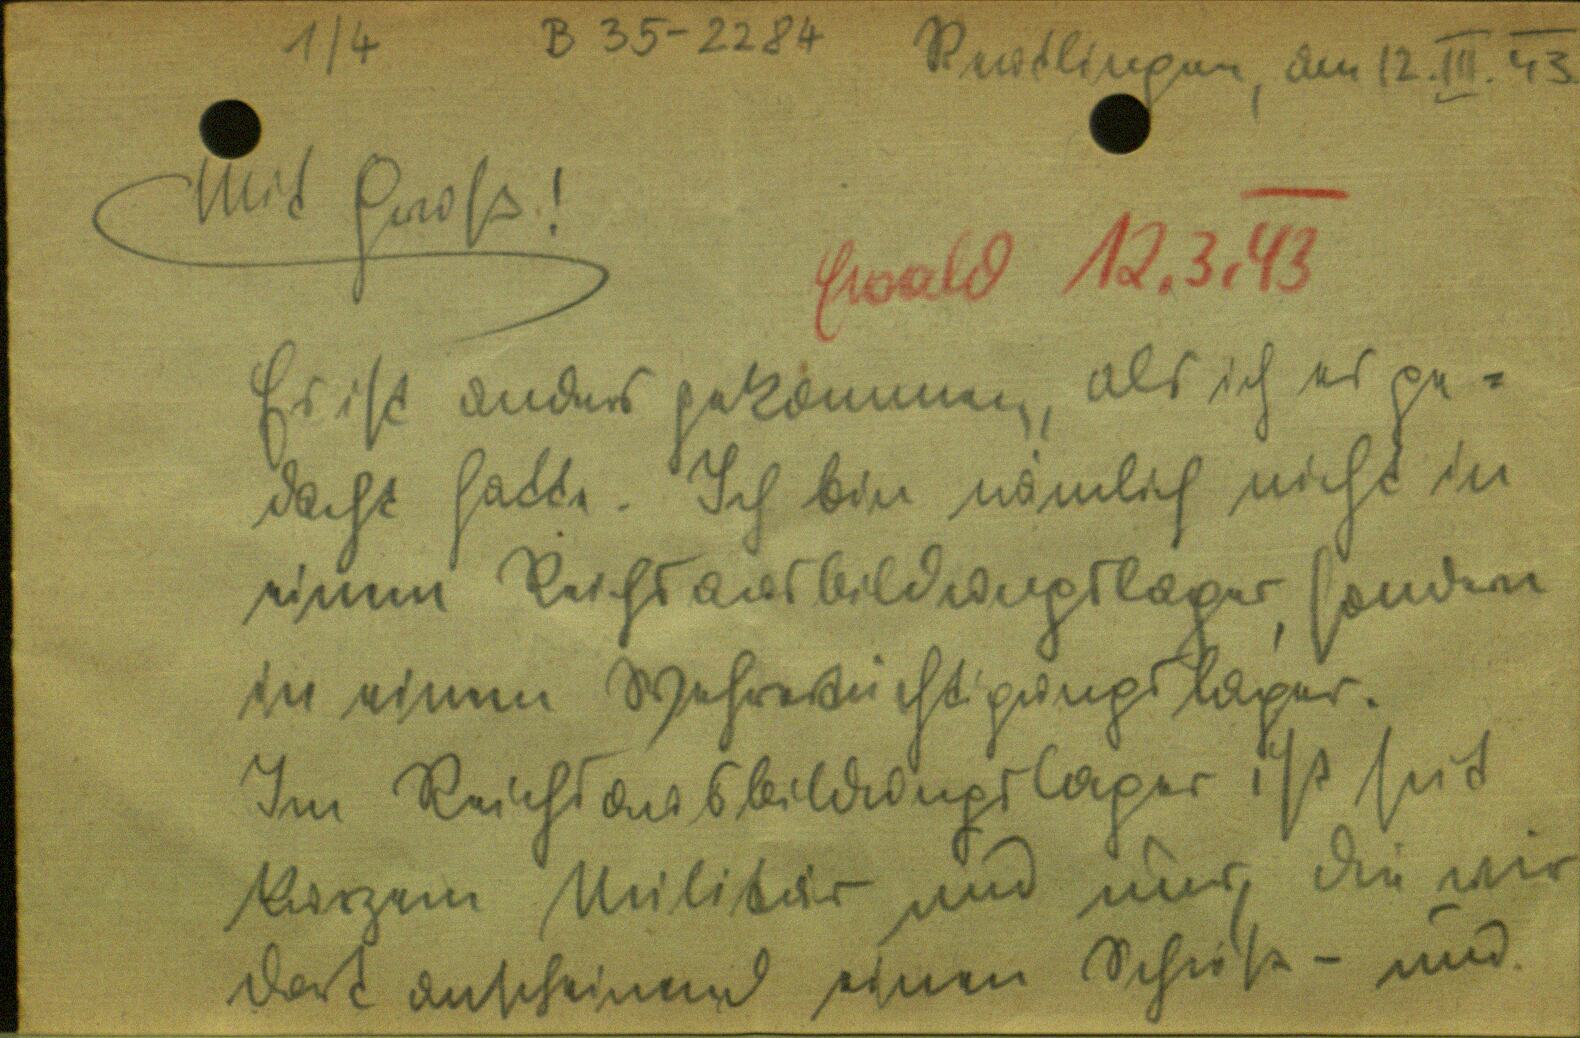 1/4 B 35-2284 Reutlingen, den 12.III.43
Mit Gruß!
Ewald 12.3.43
Es ist anders gekommen, als ich es ge=
dacht hatte. Ich bin nämlich nicht in
einem Reichsausbildungslager, sondern
in einem Wehrertüchtigungslager.
Im Reichsausbildungslager ist seit
kurzem Militär und nur, die wir
dort anscheinend einen Schieß- und